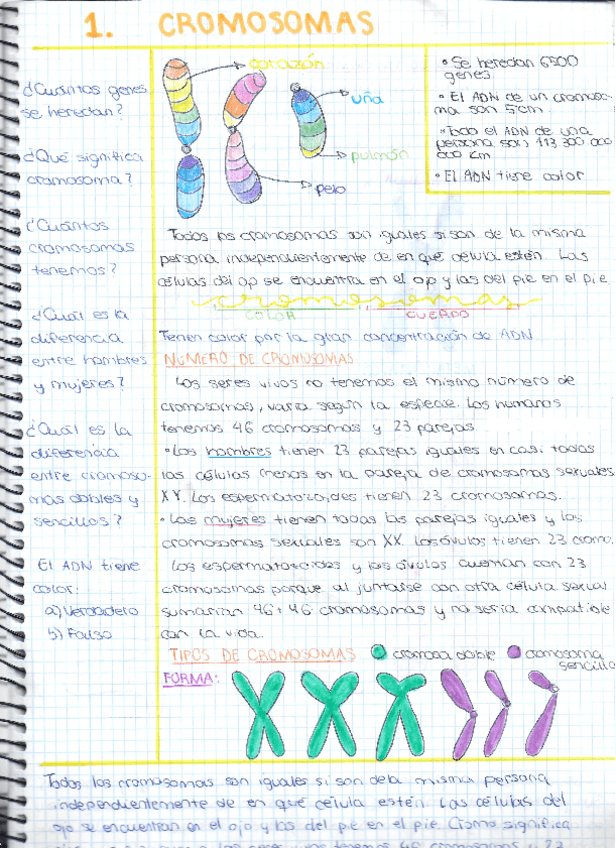 1. CROMOSOMAS
¿Cuántos genes
se heredan?
¿Qué significa
cromosoma?
¿Cuántos
cromosomas
tenemos?
¿Cuál es la
diferencia
entre hombres
y mujeres?
¿Cuál es la
diferencia
entre cromoso-
mas dobles y
sencillos?
El ADN tiene
color:
a) Verdadero
b) Falso
corazón
uña
pulmón
pelo
• Se heredan 6500
genes
• El ADN de un cromoso-
ma son 5cm.
• Todo el ADN de una
persona son 113 300 000
000 km
• El ADN tiene color
Todos los cromosomas son iguales si son de la misma
persona independientemente de en que célula estén. Las
células del ojo se encuentra en el ojo y las del pie en el pie
cromosomas
COLOR CUERPO
Tenen color por la gran concentración de ADN
NÚMERO DE CROMOSOMAS
Los seres vivos no tenemos el mismo número de
cromosomas, varía según la especie. Los humanos
tenemos 46 cromosomas y 23 parejas
• Los hombres tienen 23 parejas iguales en casi todas
las células menos en la pareja de cromosomas sexuales
XY. Los espermatozoides tienen 23 cromosomas.
• Las mujeres tienen todas las parejas iguales y los
cromosomas sexuales son XX. Los óvulos tienen 23 cromo.
Los espermatozoides y los óvulos cuentan con 23
cromosomas porque al juntarse con otra célula sexual
sumarían 46+46 cromosomas y no sería compatible
con la vida.
TIPOS DE CROMOSOMAS cromosoma doble cromosoma
sencillo
FORMA:
Todos los cromosomas son iguales si son de la misma persona
independientemente de en qué célula estén. Las células del
ojo se encuentran en el ojo y las del pie en el pie. Cromo significa
tenemos 46 cromosomas y 23